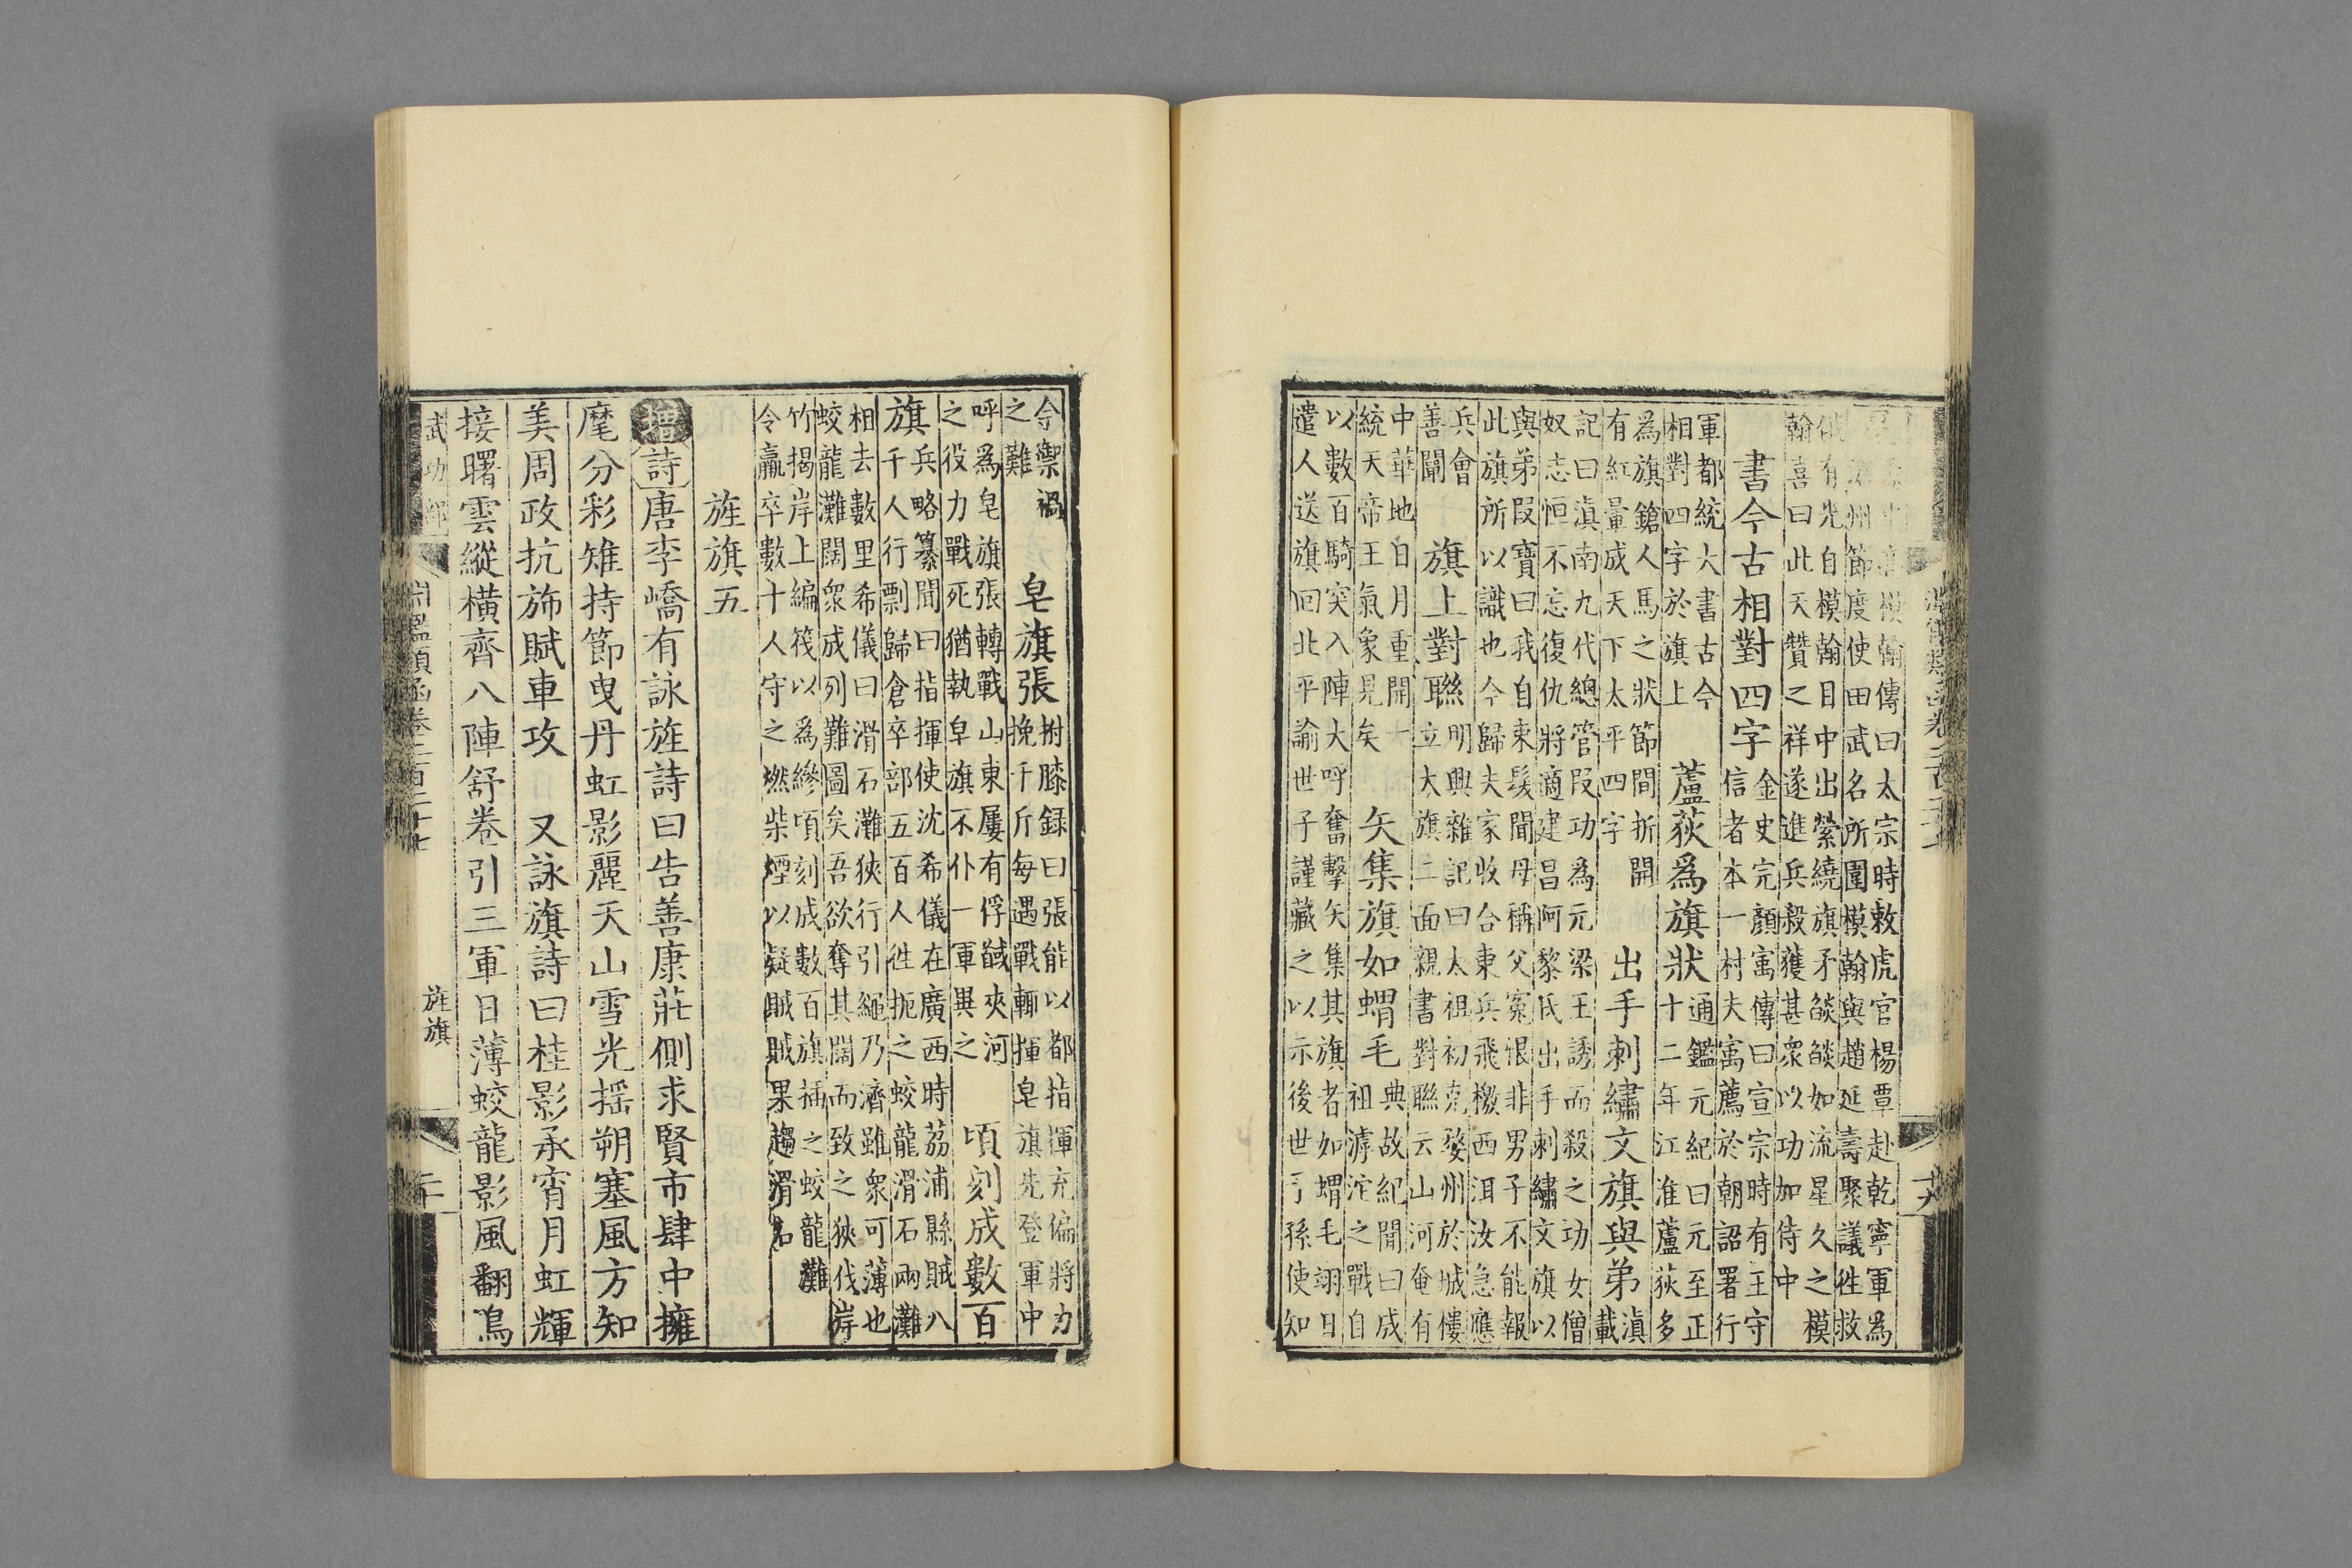 模翰傳曰太宗時敕虎官楊覃赴乾寧軍爲
滄州節度使田武名所圍模翰與趙延壽聚議往救
有光自模翰目中出縈繞旗矛燄燄如流星久之模
翰喜曰此天贊之祥遂進兵殺獲甚衆以功加侍中
書今古相對四字
金史完顏寓傳曰宣宗時有王守
信者本一村夫寓薦於朝詔署行
軍都統大書古今
相對四字於旗上
蘆荻爲旗狀
通鑑元紀曰元至正
十二年江淮蘆荻多
爲旗鎗人馬之狀節間折開
有紅暈成天下太平四字
出手刺繡文旗與弟
滇
載
記曰滇南九代總管段功爲元梁王誘而殺之功女僧
奴志恒不忘復仇將適建昌阿黎氏出手刺繡文旗以
與弟段寶曰我自束髮聞母稱父寃恨非男子不能報
此旗所以識也今歸夫家收合東兵飛檄西洱汝急應
兵會
善闡
旗上對聯
明興雜記曰太祖初克婺州於城樓
立大旗二面親書對聯云山河奄有
中華地日月重開大
統天帝王氣象見矣
矢集旗如蝟毛
典故紀聞曰成
祖滹沱之戰自
以數百騎突入陣大呼奮擊矢集其旗者如蝟毛翊日
遣人送旗回北平諭世子謹藏之以示後世子孫使知
今禦禍
之難
皁旗張
拊膝録曰張能以都指揮充偏將力
挽千斤每遇戰輒揮皁旗先登軍中
呼爲皁旗張轉戰山東屢有俘馘夾河
之役力戰死猶執皁旗不仆一軍異之
頃刻成數百
旗
兵略纂聞曰指揮使沈希儀在廣西時荔浦縣賊八
千人行剽歸倉卒部五百人往扼之蛟龍滑石兩灘
相去數里希儀曰滑石灘狹行引繩乃濟雖衆可薄也
蛟龍灘闊衆成列難圖矣吾欲奪其闊而致之狹伐岸
竹揭岸上編筏以爲縿頃刻成數百旗插之蛟龍灘
令羸卒數十人守之燃柴煙以疑賊賊果趨滑石
旌旗五
增詩唐李嶠有詠旌詩曰告善康莊側求賢市肆中擁
麾分彩雉持節曳丹虹影麗天山雪光搖朔塞風方知
美周政抗斾賦車攻 又詠旗詩曰桂影承宵月虹輝
接曙雲縱橫齊八陣舒卷引三軍日薄蛟龍影風翻鳥
武功部
淵鑑類函卷二百二十七
旌旗